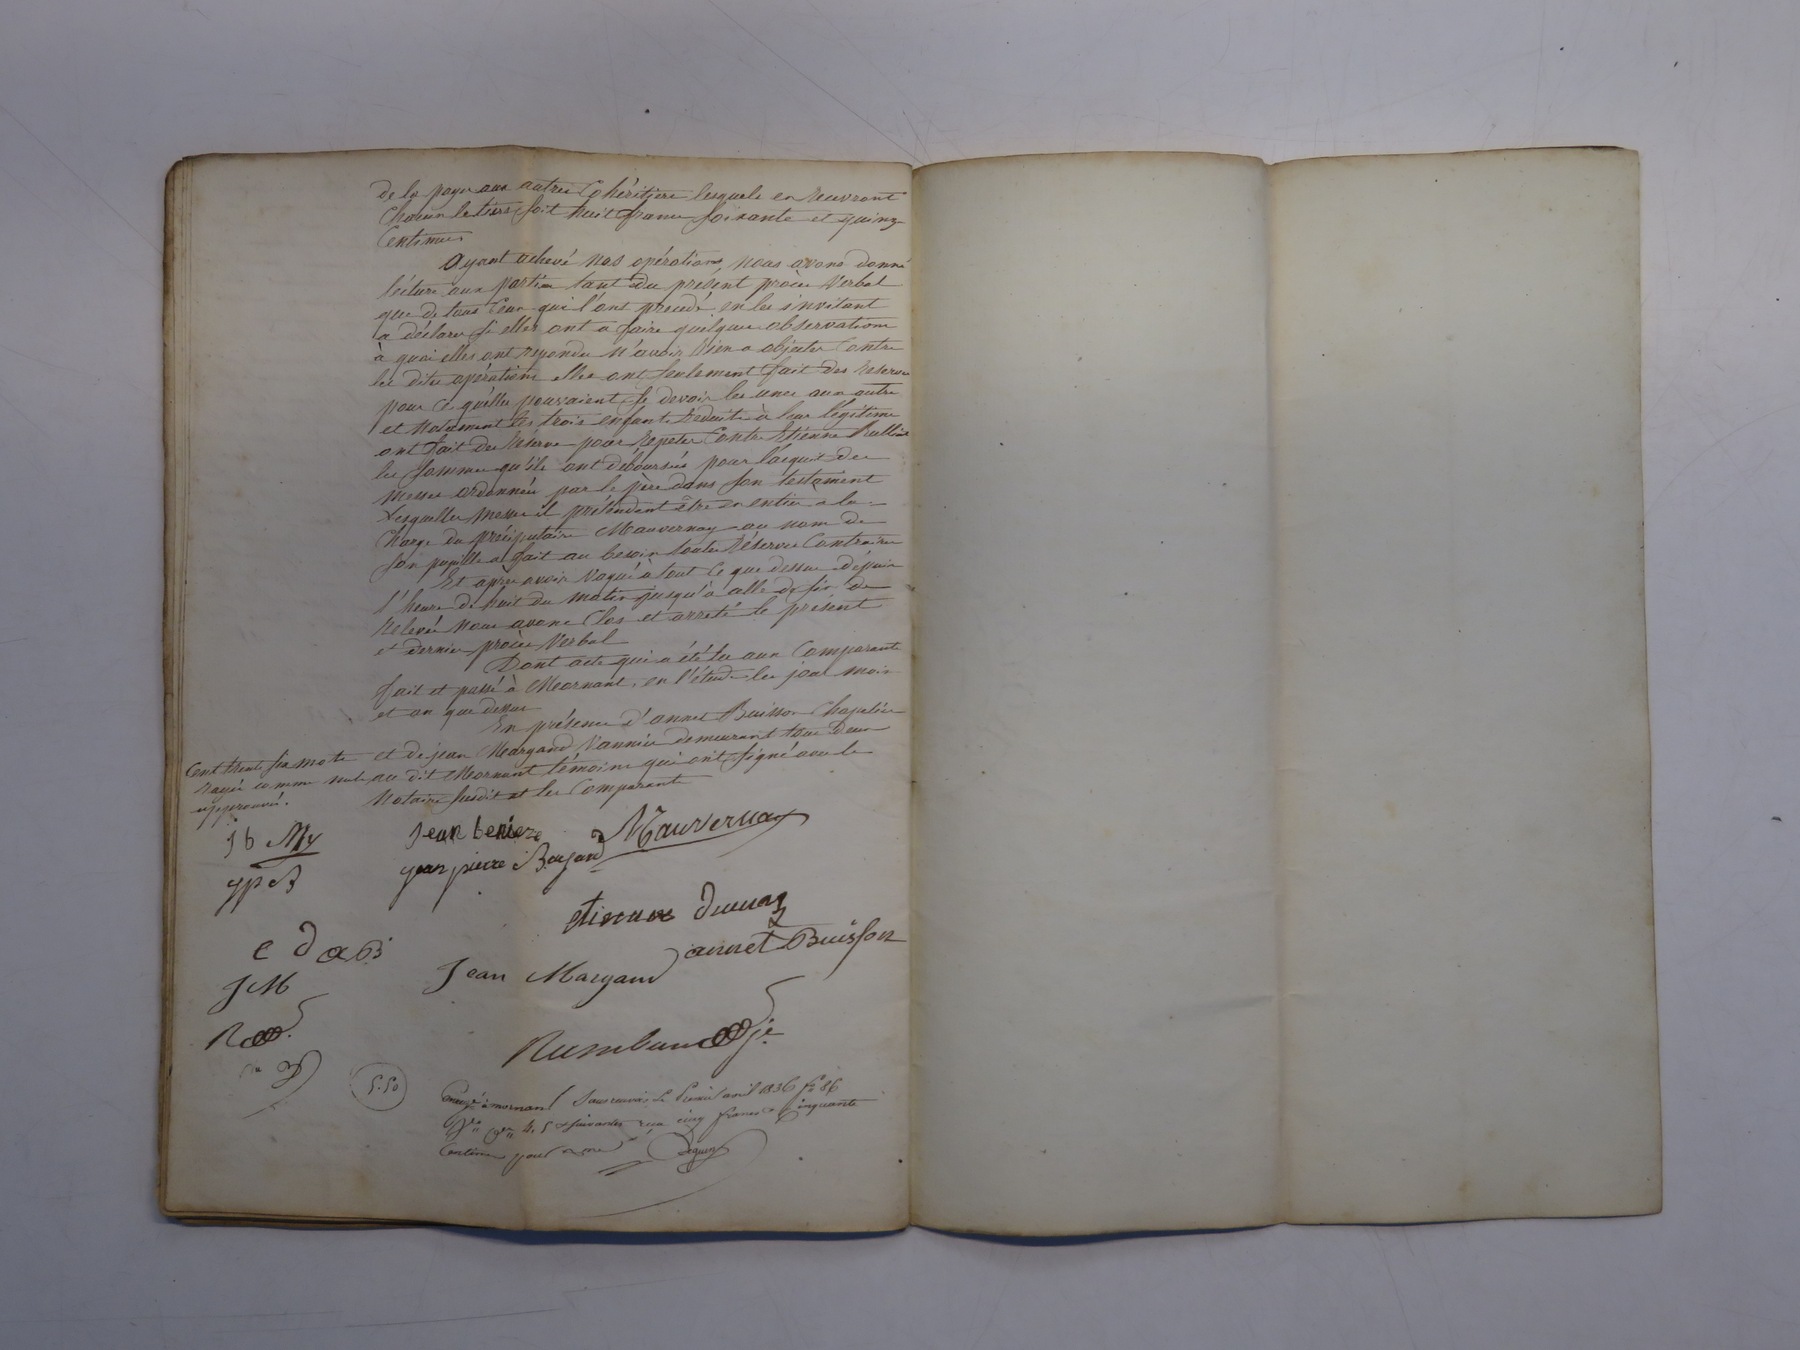 de la payer aux autres Cohéritiers lesquels en recevront
Chacun le tiers soit huit francs soixante et quinze
Centimes
Ayant achevé nos opérations, nous avons donné
lecture aux parties tant du présent procès Verbal
que de tous Ceux qui l'ont précédé en les invitant
a déclarer si elles ont a faire quelques observations
à quoi elles ont repondu n'avoir rien a objecter Contre
les dites opérations elles ont seulement fait des réserves
pour ce qu'elles pouvaient se devoir les unes aux autres
et notamment les trois enfants réduits à leur légitime
ont fait des réserves pour répéter Contre Etienne
les sommes qu'ils ont déboursées pour l'acquit des
messes ordonnées par le père dans son testament
lesquelles messes il prétendent être en entier a la
Charge du précipuitaire Mauvernay au nom de
son pupille a fait au besoin toutes réserves Contraires
Et après avoir vaqué à tout ce que dessus depuis
l'heure de huit du matin jusqu'à celle de six de
relevée nous avons Clos et arreté le présent
et dernier procès Verbal
Dont acte qui a été lu aux Comparants
fait et passé à Mornant, en l'étude les jour mois
et an que dessus
En présence d'annet Buisson Chapelier
et de jean Margand Vannier demeurant tous deux
au dit Mornant témoins qui ont signé avec le
Notaire susdit et les Comparants
Cent trente six mots
rayés comme nuls
approuvés.
jb My
jp B
e D a B
JM
R
jean
Mauvernay
jean pierre
etienne
annet Buisson
Jean Margand
5.50
à mornant sans renvoi le avril 1836 f° 86
4, 5 & suivantes reçu cinq francs Cinquante
Centimes pour